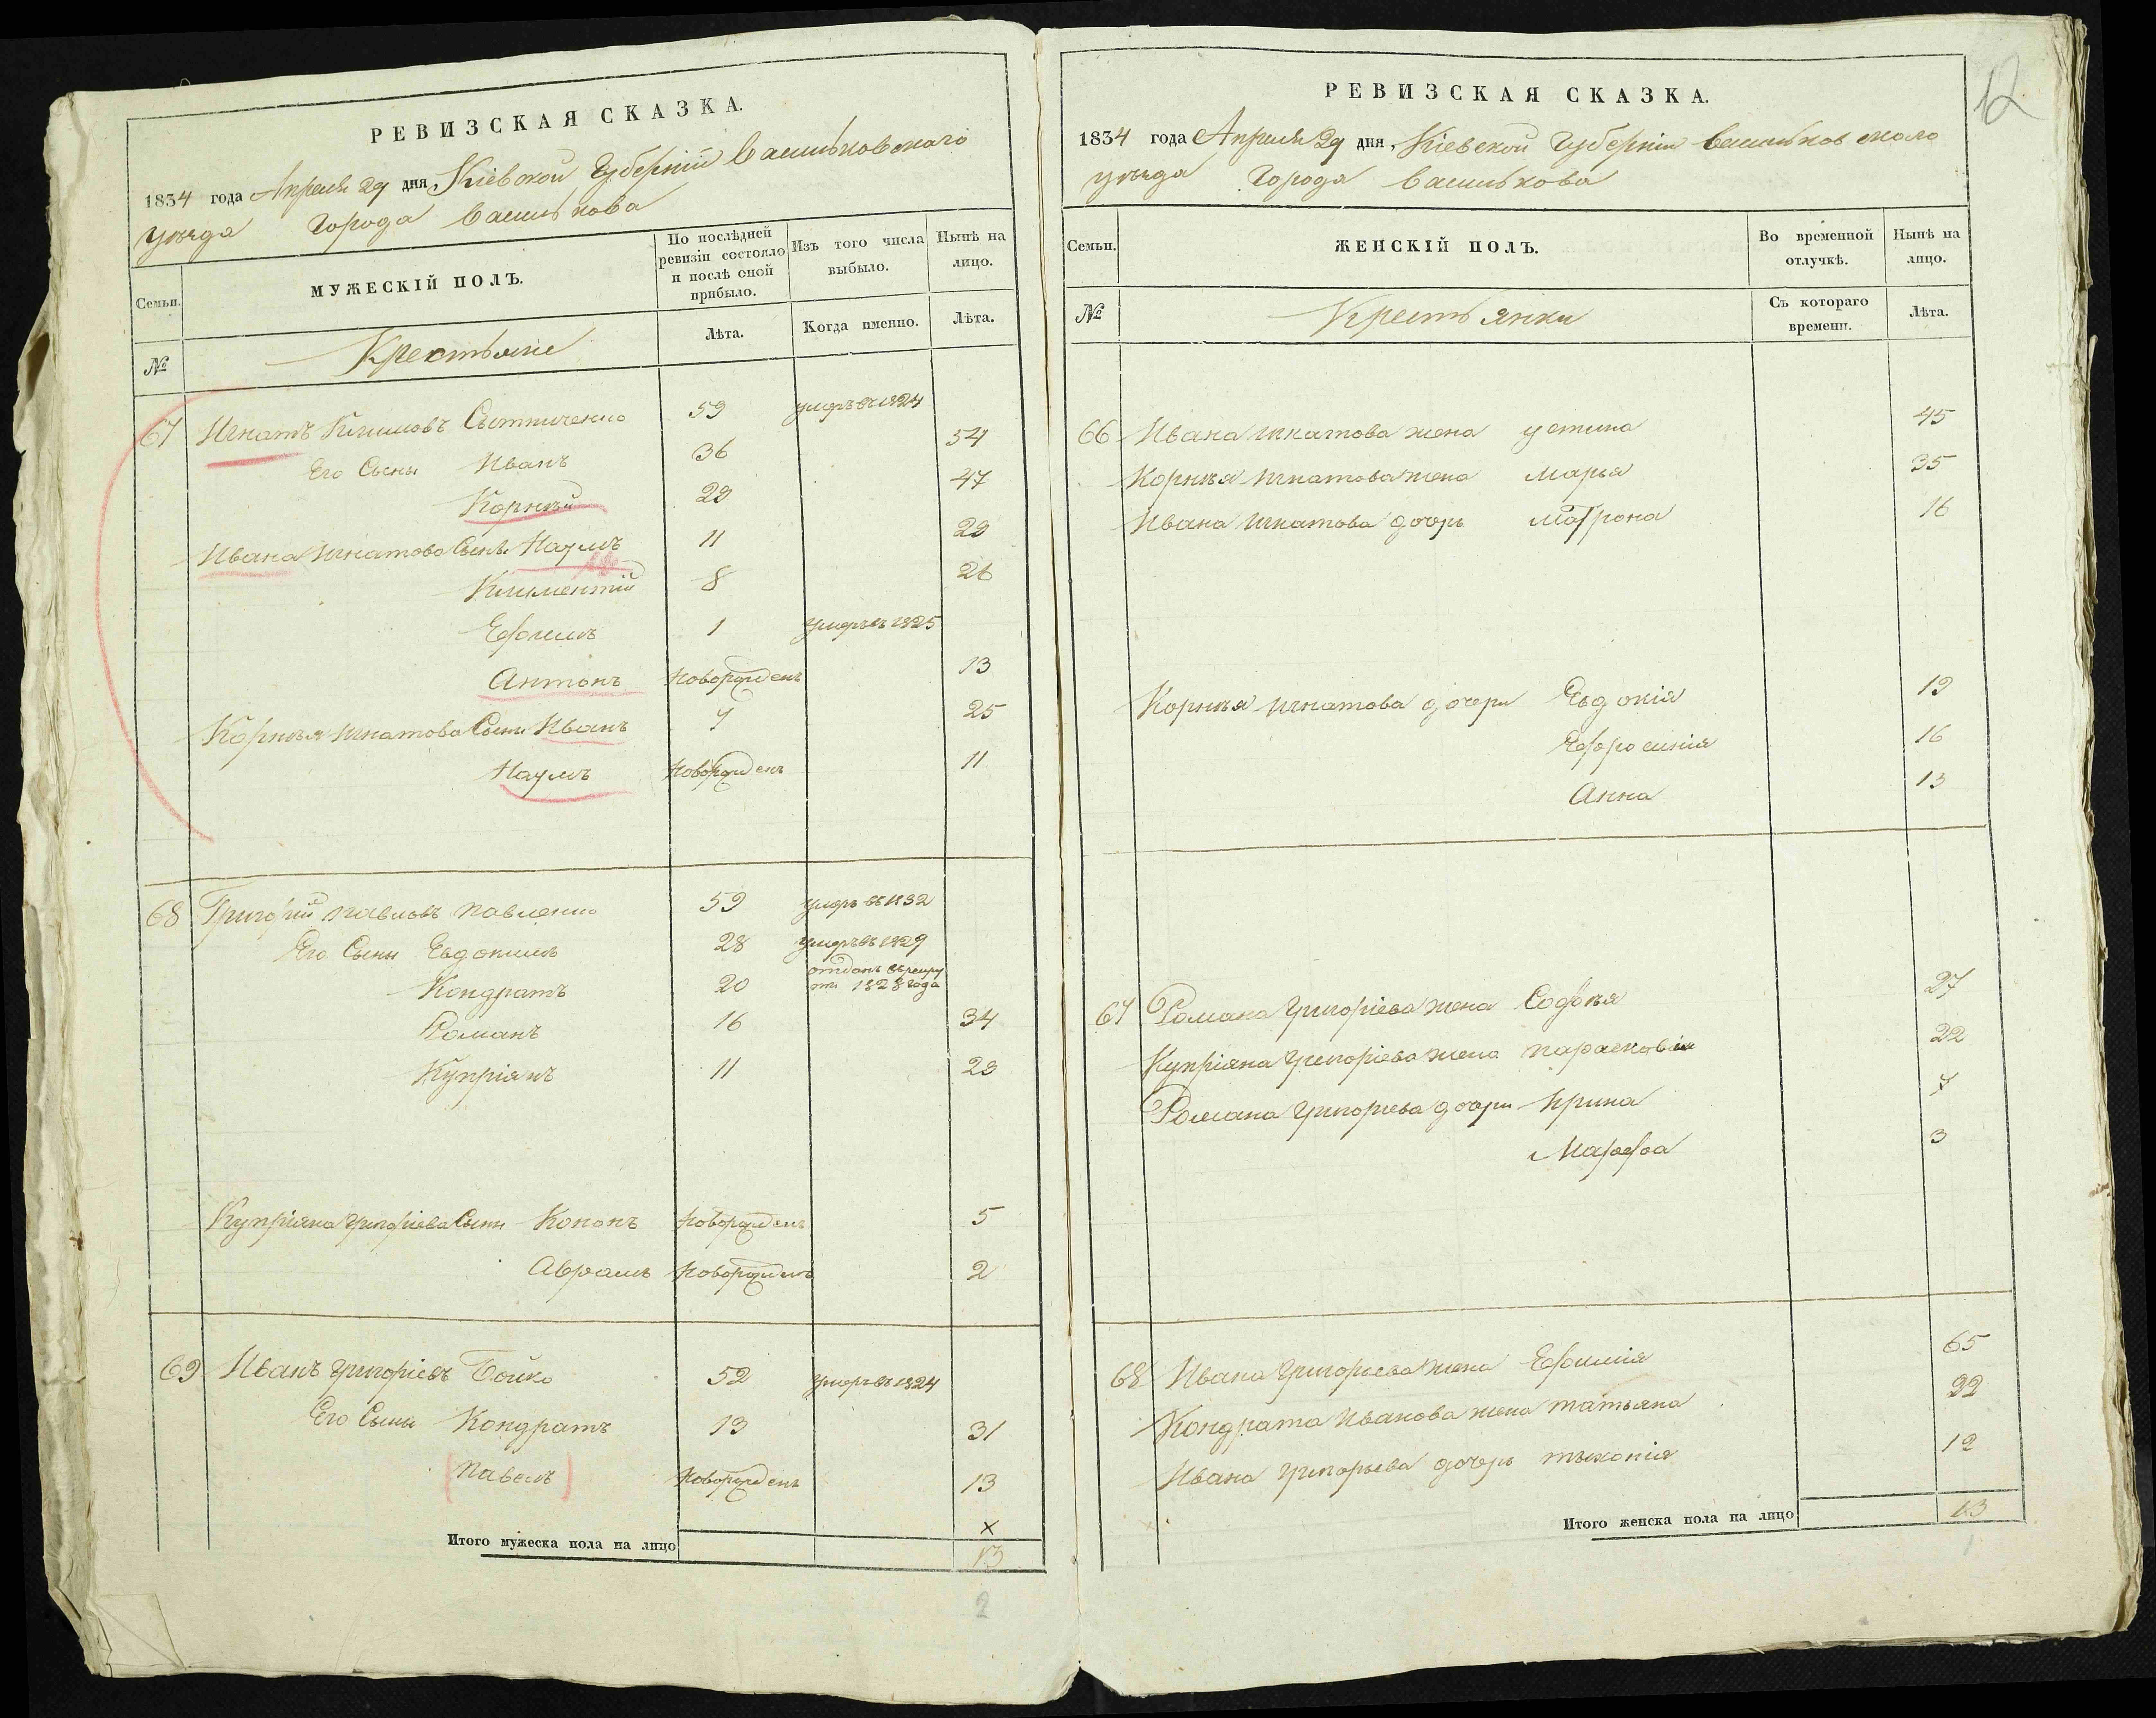 РЕВИЗСКАЯ СКАЗКА.
1834 года Апреля 29 дня, Кіевской Губерніи Васильковскаго
уѣзда Города Василькова
Семьи.
МУЖЕСКІЙ ПОЛЪ.
По послѣдней ревизіи состояло и послѣ оной прибыло.
Изъ того числа выбыло.
Нынѣ на лицо.
№
Крестьяне
Лѣта.
Когда именно.
Лѣта.
67 Игнатъ Климовъ 59 умеръ въ 1824
Его Сыны Иванъ 36 54
Корнѣй 29 47
Ивана Игнатова Сыны Наумъ 11 29
Климентій 8 26
Ефимъ 1 умеръ въ 1825
Антонъ новорожденъ 13
Корнѣя Игнатова Сыны Иванъ 7 25
Наумъ новорожденъ 11
68 Григорій Павловъ Павленко 59 умеръ въ 1832
Его Сыны Евдокимъ 28 умеръ въ 1829
Кондратъ 20 отданъ въ рекру
ти 1828 года
Романъ 16 34
Купріянъ 11 29
Купріяна Григоріева Сыны Кононъ новорожденъ 5
Аврамъ новорожденъ 2
69 Иванъ Григоріевъ Бойко 52 умеръ въ 1824
Его Сыны Кондратъ 13 31
Павелъ новорожденъ 13
х
Итого мужеска пола на лицо 13
2
12
РЕВИЗСКАЯ СКАЗКА.
1834 года Апреля 29 дня, Кіевской Губерніи Васильковскаго
уѣзда Города Василькова
Семьи.
ЖЕНСКІЙ ПОЛЪ.
Во временной отлучкѣ.
Нынѣ на лицо.
№
Крестьянки
Съ котораго времени.
Лѣта.
66 Ивана Игнатова жена Устина 45
Корнѣя Игнатова жена Марья 35
Ивана Игнатова дочерь Матрона 16
Корнѣя Игнатова дочери Евдокія 19
Ефросинія 16
Анна 13
67 Романа Григоріева жена Софья 27
Купріяна Григоріева жена Парасковія 22
Романа Григорьева дочери Ирина 7
Марфа 3
68 Ивана Григорьева жена Ефимія 65
Кондрата Иванова жена Татьяна 32
Ивана Григорьева дочерь 12
Итого женска пола на лицо 13